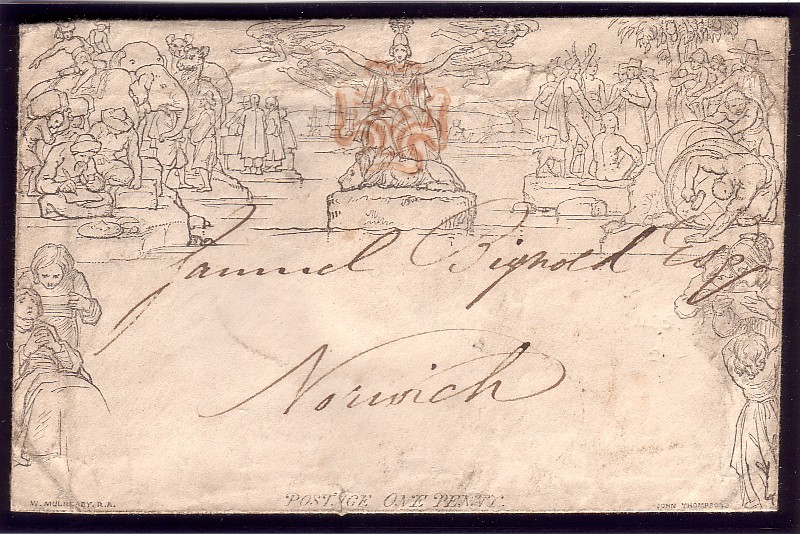 Samuel Bignold Esq
Norwich
POSTAGE ONE PENNY.
W. MULREADY. R.A.
JOHN THOMPSON